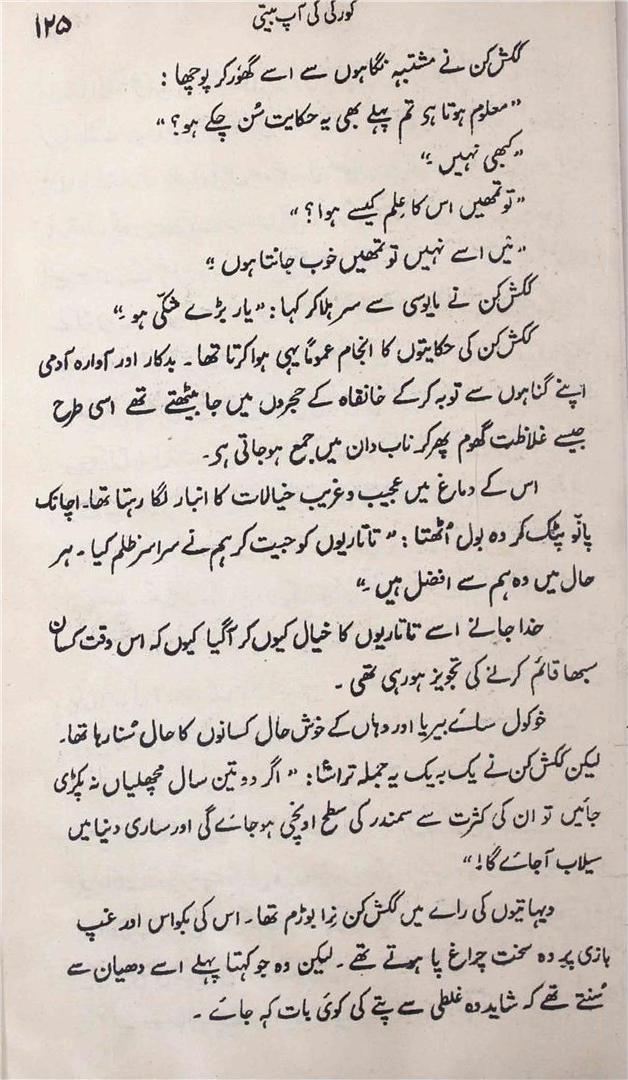 ۱۲۵
گورکی کی آپ بیتی
ککش کن نے مشتبہ نگاہوں سے اسے گھور کر پوچھا :
”معلوم ہوتا ہی تم پہلے بھی یہ حکایت سُن چکے ہو؟“
”کبھی نہیں ۔“
”تو تمھیں اس کا علم کیسے ہوا؟“
”میں اسے نہیں تو تمھیں خوب جانتا ہوں ۔“
ککش کن نے مایوسی سے سر ہلا کر کہا : ”یار بڑے شکّی ہو ۔“
ککش کن کی حکایتوں کا انجام عموماً یہی ہوا کرتا تھا ۔ بدکار اور آوارہ آدمی
اپنے گناہوں سے توبہ کر کے خانقاہ کے حجروں میں جا بیٹھتے تھے اسی طرح
جیسے غلاظت گھوم پھر کر ناب دان میں جمع ہو جاتی ہی۔
اس کے دماغ میں عجیب و غریب خیالات کا انبار لگا رہتا تھا۔ اچانک
پانّو پٹک کر وہ بول اُٹھتا : ”تاتاریوں کو جیت کر ہم نے سراسر ظلم کیا ۔ ہر
حال میں وہ ہم سے افضل ہیں ۔“
خدا جانے اسے تاتاریوں کا خیال کیوں کر آگیا کیوں کہ اس وقت کسان
سبھا قائم کرنے کی تجویز ہو رہی تھی ۔
خوکول سائے بیریا اور وہاں کے خوش حال کسانوں کا حال سُنا رہا تھا۔
لیکن ککش کن نے یک بہ یک یہ جملہ تراشا : ”اگر دو تین سال مچھلیاں نہ پکڑی
جائیں تو ان کی کثرت سے سمندر کی سطح اونچی ہو جائے گی اور ساری دنیا میں
سیلاب آ جائے گا!“
دیہاتیوں کی رائے میں ککش کن نِرا بوڑم تھا ۔ اس کی بکواس اور غپ
بازی پر وہ سخت چراغ پا ہوتے تھے ۔ لیکن وہ جو کہتا پہلے اسے دھیان سے
سُنتے تھے کہ شاید وہ غلطی سے پتے کی کوئی بات کہہ جائے ۔